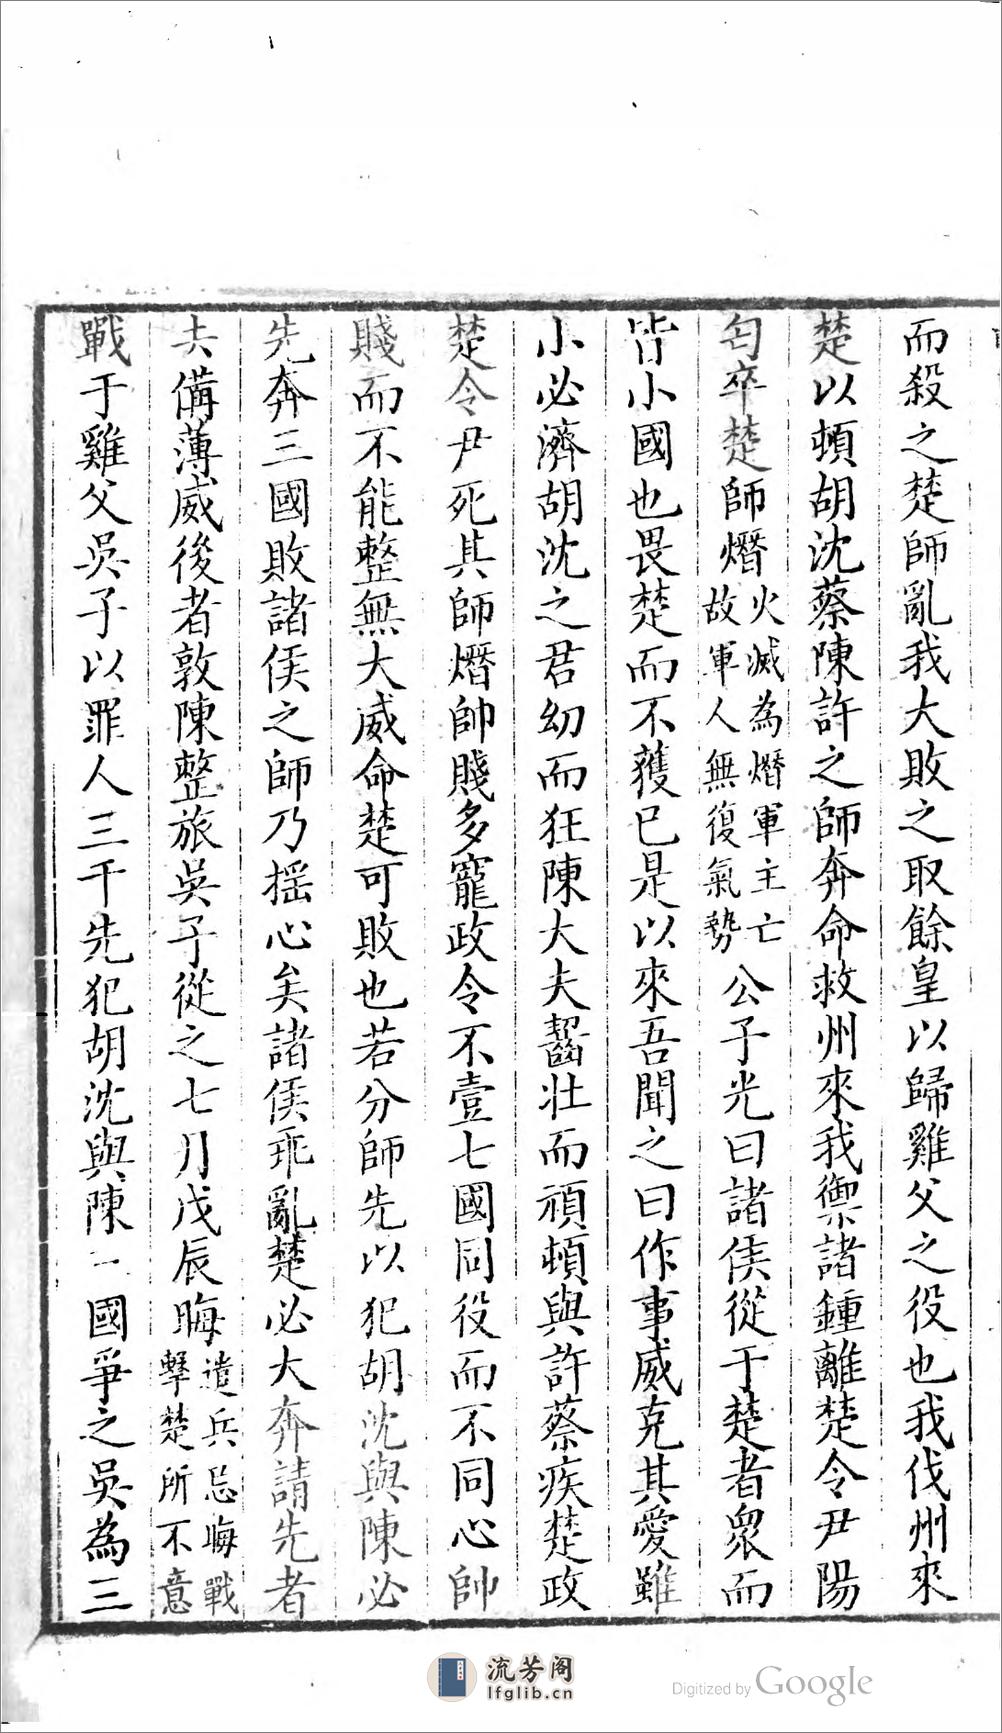 而殺之楚師亂我大敗之取餘皇以歸雞父之役也我伐州來
楚以頓胡沈蔡陳許之師奔命救州來我禦諸鍾離楚令尹陽
匄卒楚師熸火滅為熸軍主亡故軍人無復氣勢公子光曰諸侯從于楚者眾而
皆小國也畏楚而不獲已是以來吾聞之曰作事威克其愛雖
小必濟胡沈之君幼而狂陳大夫齧壯而頑頓與許蔡疾楚政
楚令尹死其師熸帥賤多寵政令不壹七國同役而不同心帥
賤而不能整無大威命楚可敗也若分師先以犯胡沈與陳必
先奔三國敗諸侯之師乃揺心矣諸侯乖亂楚必大奔請先者
去備薄威後者敦陳整旅吳子從之七月戊辰晦違兵忌晦戰擊楚所不意
戰于雞父吳子以罪人三千先犯胡沈與陳國爭之吳為三
流芳阁
lfglib.cn
Digitized by Google